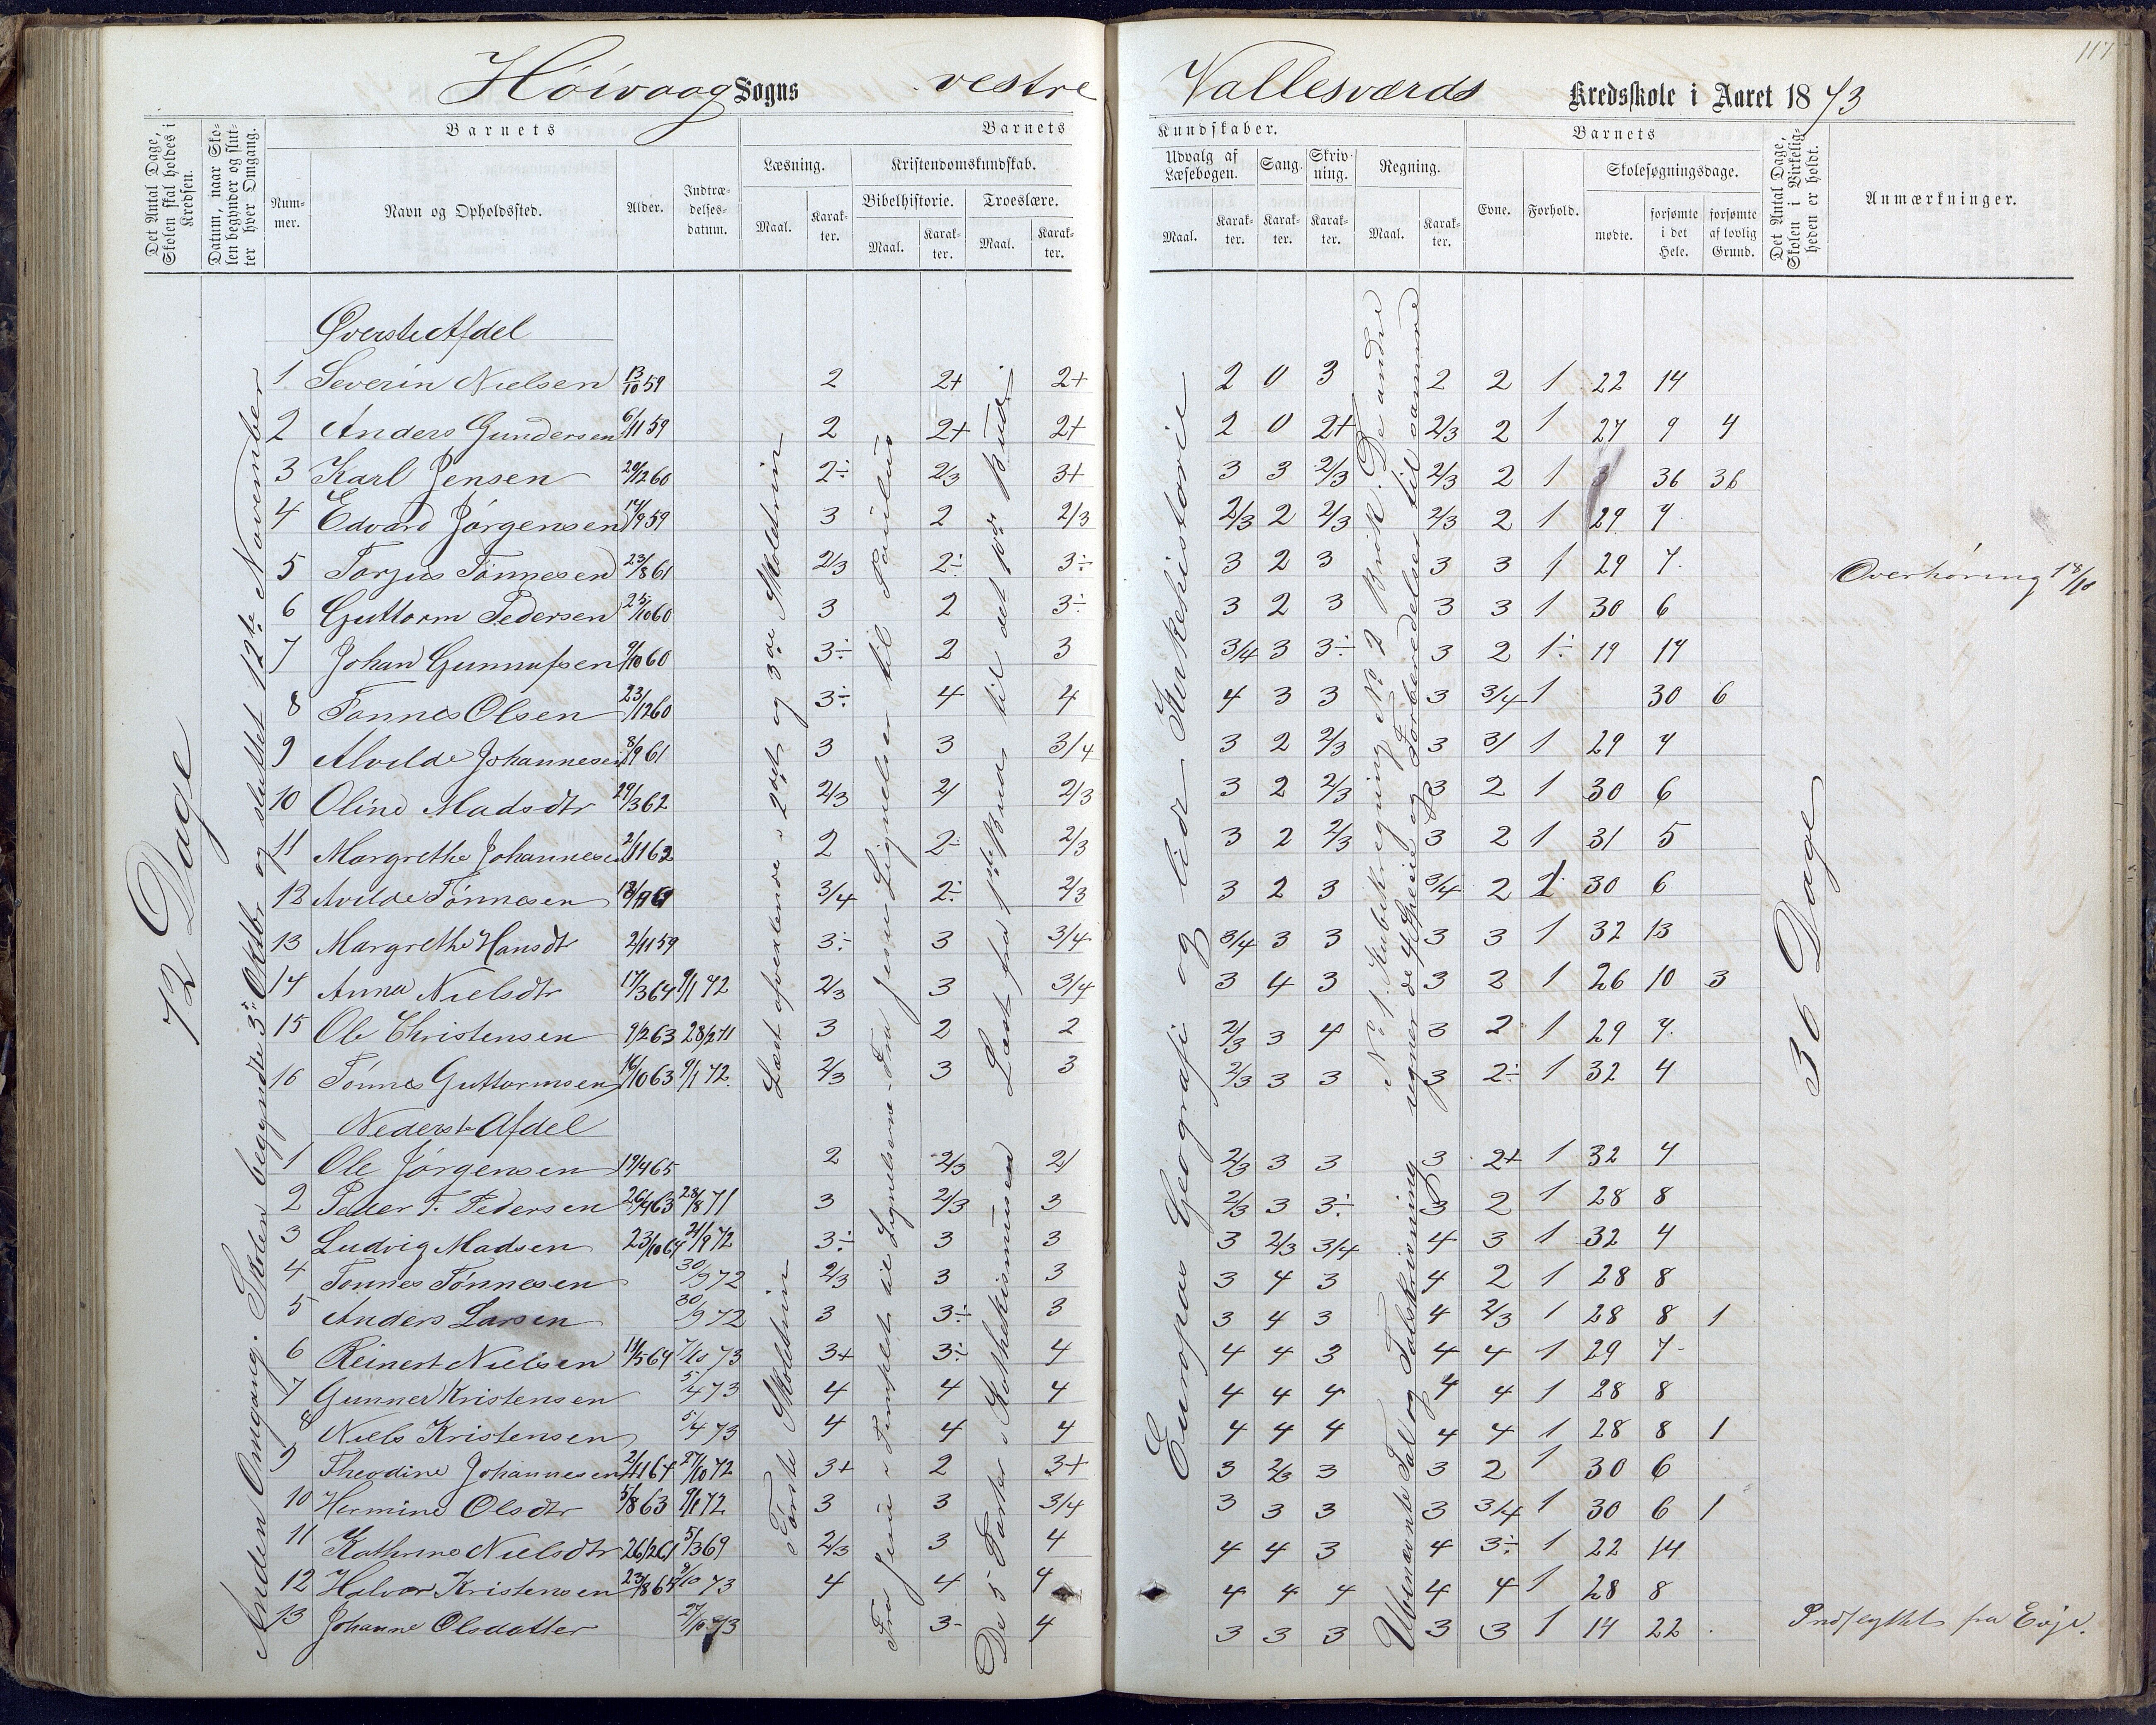 117
Höivaag Sogns vestre Vallesværds Kredsskole i Aaret 1873
Det Antal Dage, Skolen skal holdes i Kredsen.
Datum, naar Skolen begynder og slutter hver Omgang.
Barnets
Nummer.
Navn og Opholdssted.
Alder.
Indtrædelsesdatum.
Barnets
Læsning.
Maal.
Karakter.
Kristendomskundskab.
Bibelhistorie.
Maal.
Karakter.
Troeslære.
Maal.
Karakter.
Kundskaber.
Udvalg af Læsebogen.
Maal.
Karakter.
Sang.
Karakter.
Skrivning.
Karakter.
Regning.
Maal.
Karakter.
Barnets
Evne.
Forhold.
Skolesøgningsdage.
mødte.
forsømte i det Hele.
forsømte af lovlig Grund.
Det Antal Dage, Skolen i Virkeligheden er holdt.
Anmærkninger.
72 Dage
Anden Omgang. Skolen begyndte 3. Oktbr og sluttet 12te November
Øverste Afdel
1 Severin Nielsen 13/10 59 2 2+ 2+ 2 0 3 2 2 1 22 14
2 Anders Gundersen 6/11 59 2 2+ 2+ 2 0 2+ 2/3 2 1 27 9 4
3 Karl Jensen 20/12 60 2÷ 2/3 3+ 3 3 2/3 2/3 2 1 36 36
4 Edvard Jörgensen 14/9 59 3 2 2/3 2/3 2 2/3 2/3 2 1 29 7
5 Torjus Tönnesen 23/8 61 2/3 2÷ 3÷ 3 2 3 3 3 1 29 7
6 Guttorm Pedersen 25/10 60 3 2 3÷ 3 2 3 3 3 1 30 6
7 Johan Gunnufsen 9/10 60 3÷ 2 3 3/4 3 3÷ 3 2 1÷ 19 17
8 Tönnes Olsen 23/12 60 3÷ 4 4 4 3 3 3 3/4 1 30 6
9 Alvilde Johannesen 8/9 61 3 3 3/4 3 2 2/3 3 3/ 1 29 7
10 Oline Madsdtr 29/3 62 2/3 2/ 2/3 3 2 2/3 3 2 1 30 6
11 Margrethe Johannesen 2/11 62 2 2÷ 2/3 3 2 2/3 3 2 1 31 5
12 Avilde Tönnesen 3/4 2÷ 2/3 3 2 3 3/4 2 1 30 6
13 Margrethe Hansdtr 2/11 59 3÷ 3 3/4 3/4 3 3 3 3 1 32 13
14 Anna Nielsdtr 17/3 64 9/1 72 2/3 3 3/4 3 4 3 3 2 1 26 10 3
15 Ole Christensen 9/2 63 28/2 71 3 2 2 2/3 3 4 3 2 1 29 7
16 Tönnes Guttormsen 16/10 63 9/1 72 2/3 3 3 2/3 3 3 3 2÷ 1 32 4
Læst afvexlende i 2det og 3die Skoletrin
Fra Jesu Lignelser til Paulus
Læst fra 1ste Bud til det 10de Bud
Europas Geografi og lidt Kirkehistorie
No 1. Kubikregning No 2 Brök. De andre
regner de 4 Specier og Forberedelser til samme
36 Dage
Overhöring 18/10
Nederste Afdel
1 Ole Jörgensen 19/4 65 2 2/3 2/ 2/3 3 3 3 2+ 1 32 4
2 Peder T. Pedersen 26/4 63 28/8 71 3 2/3 3 2/3 3 3÷ 3 2 1 28 8
3 Ludvig Madsen 23/10 64 21/9 72 3÷ 3 3 3 2/3 3/4 4 3 1 32 4
4 Tönnes Tönnesen 30/9 72 2/3 3 3 3 4 3 4 2 1 28 8
5 Anders Larsen 30/9 72 3 3÷ 3 3 4 3 4 2/3 1 28 8 1
6 Reinert Nielsen 11/5 64 7/10 73 3+ 3÷ 4 4 4 3 4 4 1 29 7
7 Gunner Kristensen 5/4 73 4 4 4 4 4 4 4 4 1 28 8
8 Niels Kristensen 5/4 73 4 4 4 4 4 4 4 4 1 28 8 1
9 Theodine Johannesen 2/11 64 27/10 72 3+ 2 3+ 3 2/3 3 3 2 1 30 6
10 Hermine Olsdtr 5/8 63 9/1 72 3 3 3/4 3 3 3 3 3/4 1 30 6 1
11 Kathrine Nielsdtr 26/2 61 5/3 69 2/3 3 4 4 4 3 4 3÷ 1 22 14
12 Halvor Kristensen 23/8 64 9/10 73 4 4 4 4 4 4 4 4 1 28 8
13 Johanne Olsdatter 27/10 73 3- 4 3 3 3 3 3 1 14 22
i Förste Skoletrin
Fra Jesu i Templet til Lignelserne
De 5 Parter i Kathekismusen
Ubenævnte Tal og Talskrivning
Indflyttet fra Evje.